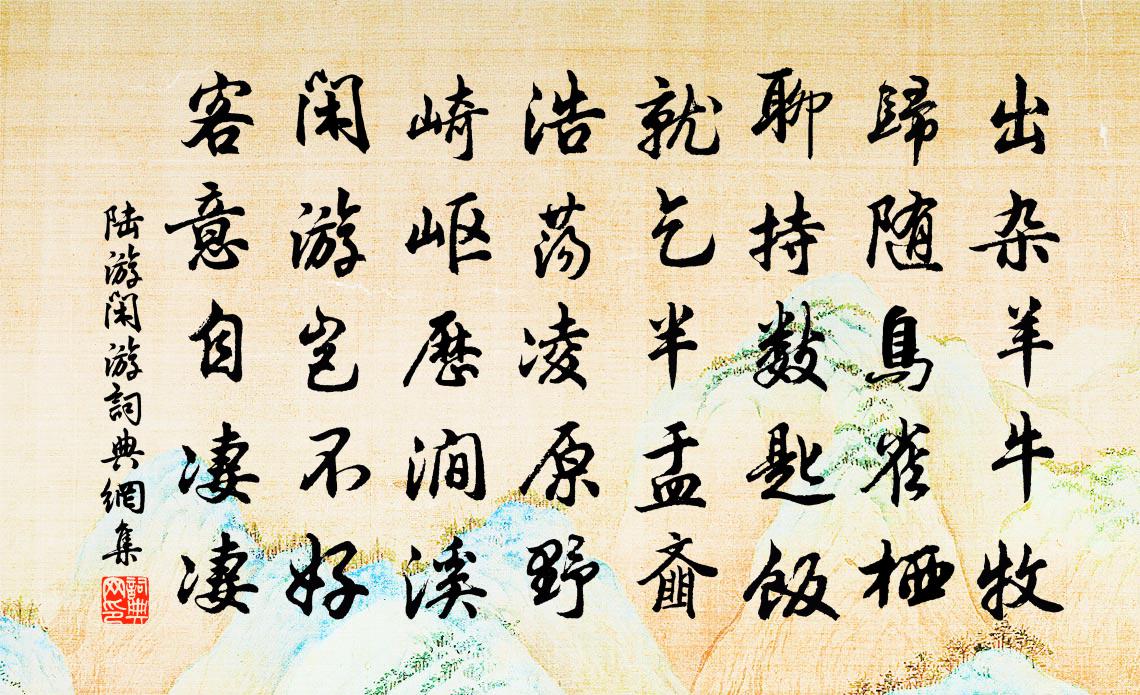 出杂羊牛牧
歸随鳥雀栖
聊持数匙飯
就乞半盂齑
浩荡凌原野
崎岖歷澗溪
闲游岂不好
客意自凄凄
陆游闲游詞典網集
詞典网印